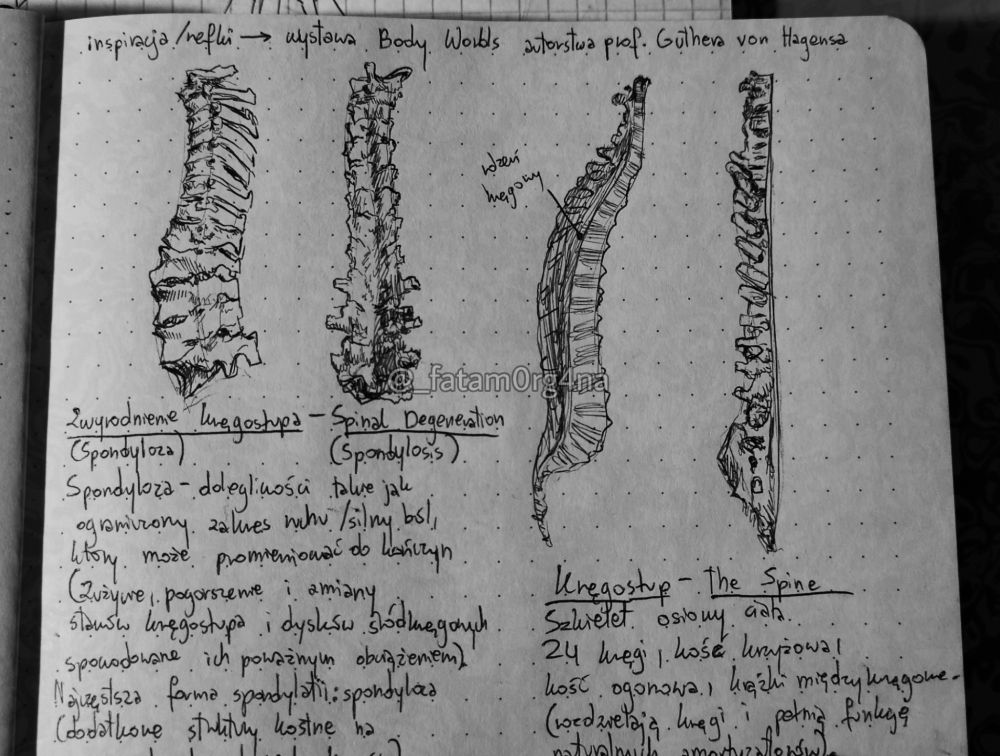 inspiracja/refki → wystawa Body Worlds autorstwa prof. Guthera von Hagensa
rdzeń
kręgowy
@_fatam0rg4na
Zwyrodnienie kręgosłupa – Spinal Degeneration
(Spondyloza) (Spondylosis)
Spondyloza – dolegliwości takie jak
ograniczony zakres ruchu/silny ból,
który może promieniować do kończyn
(Zużycie, pogorszenie i zmiany
stawów kręgosłupa i dysków śródkręgowych
spowodowane ich poważnym obciążeniem).
Najczęstsza forma spondylatii: spondyloza
(dodatkowe struktury kostne na
Kręgosłup – The Spine
Szkielet osiowy ciała.
24 kręgi, kość krzyżowa,
kość ogonowa, krążki międzykręgowe-
(rozdzielają kręgi i pełnią funkcję
naturalnych amortyzatorów)